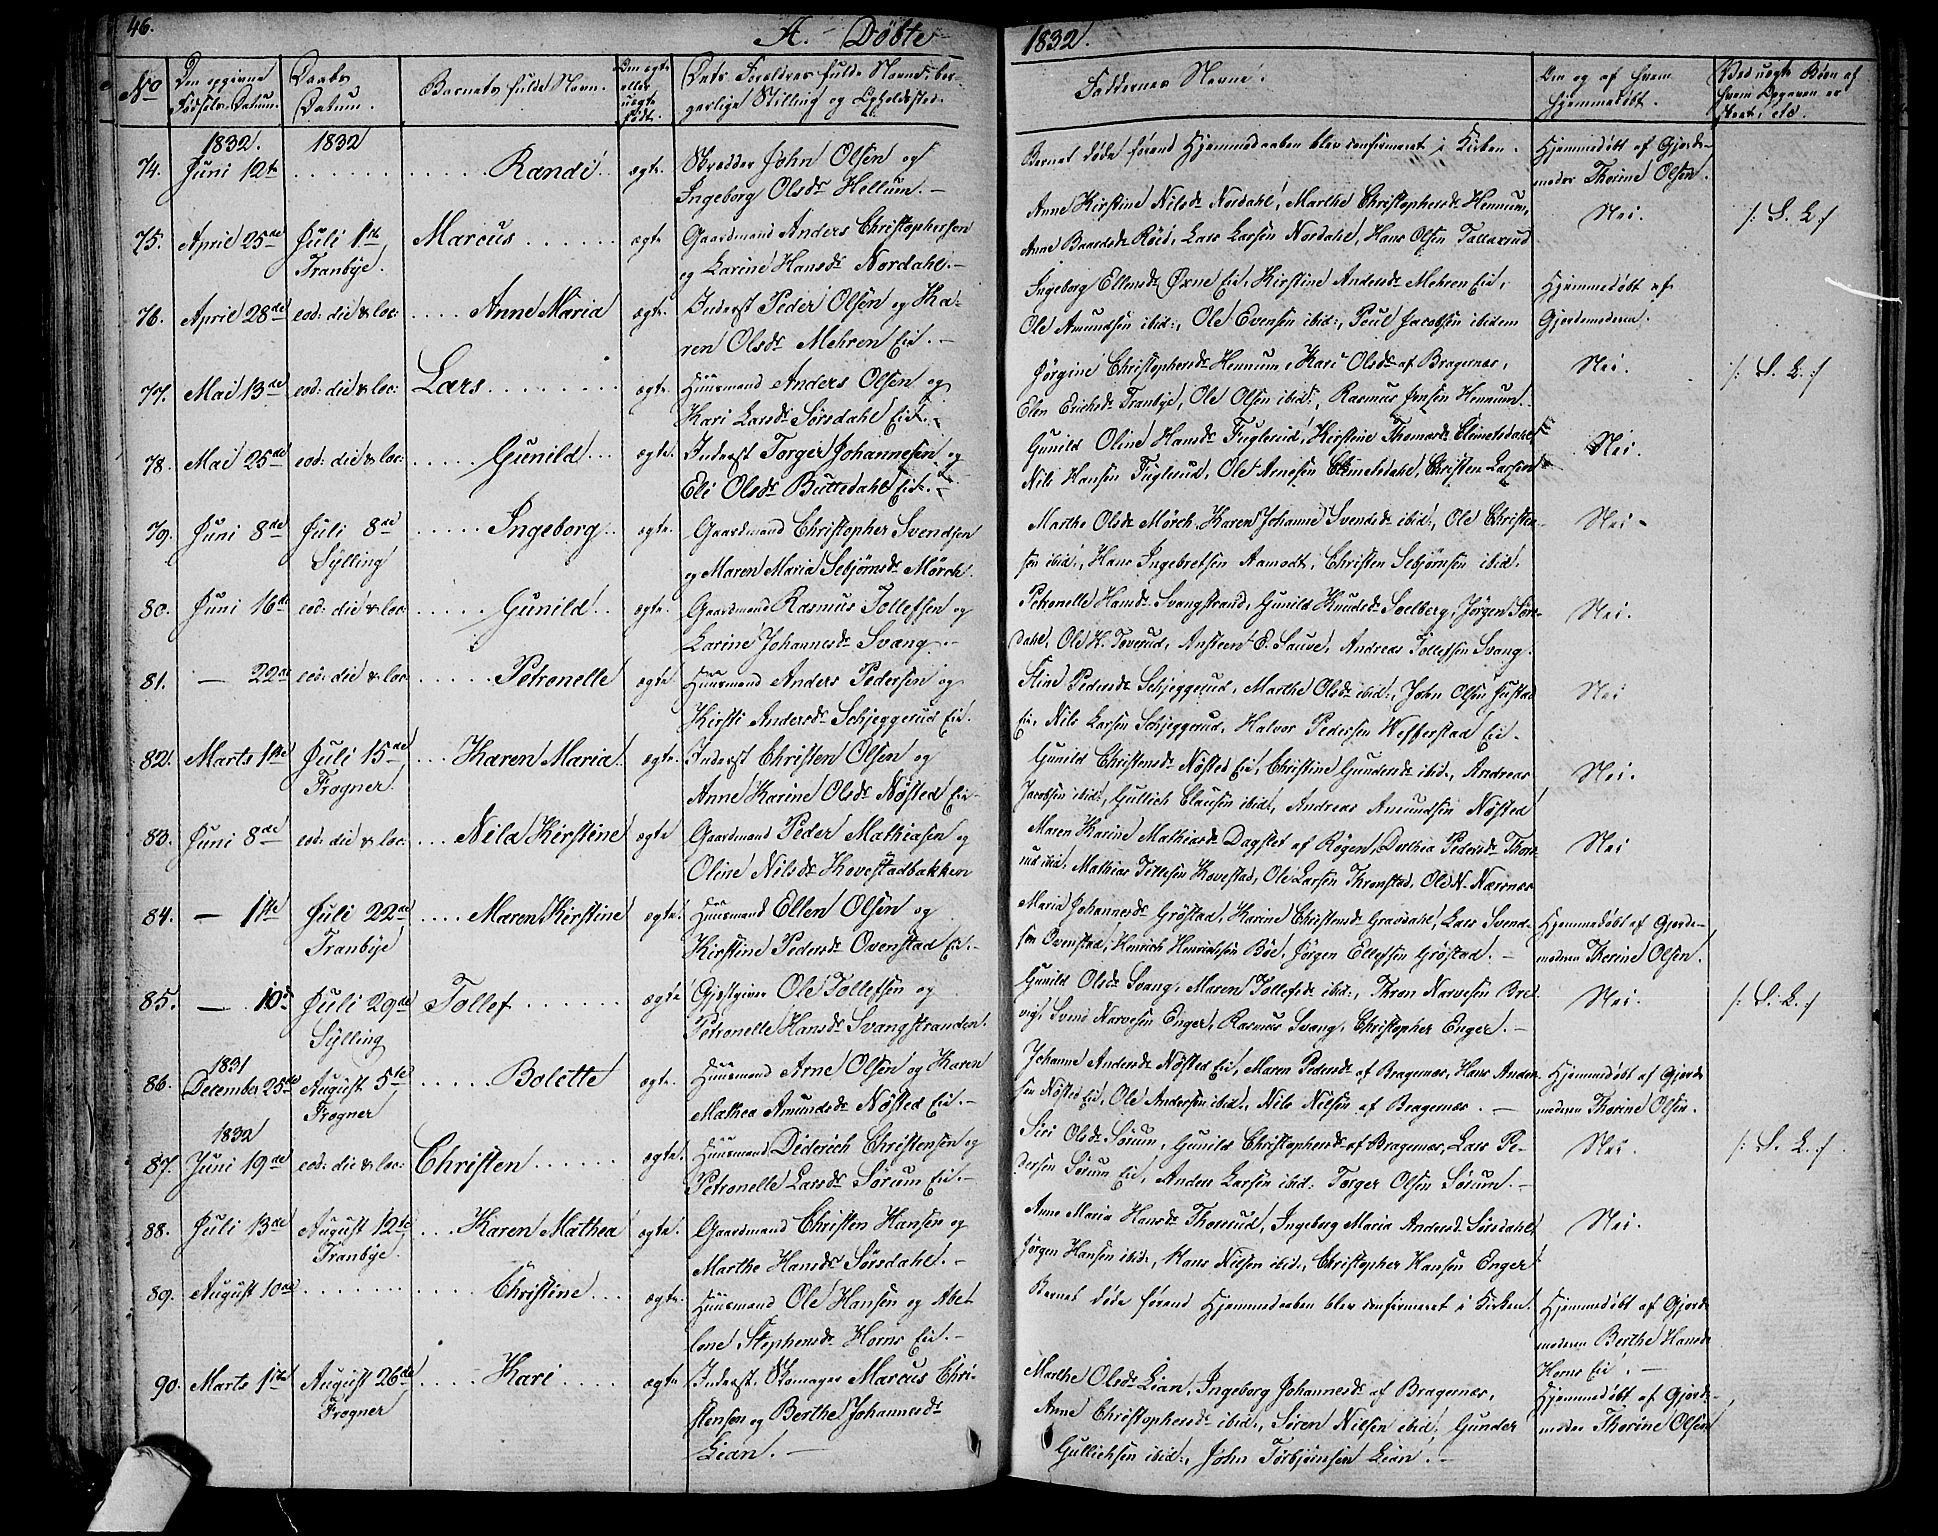 46.
A. Döbte
1832.
No
Den opgivne Fødsels-Datum.
Daabs Datum.
Barnets fulde Navn.
Om ægte eller uægte født.
Dets Forældres fulde Navne, borgerlige Stilling og Opholdssted.
Faddernes Navne.
Om og af hvem hjemmedøbt.
Ved uægte Børn af hvem Opgaven er skeet, etc.
1832. 1832
74. Juni 12te . . . . . . Randi . . ægte. Skrædder John Olsen og
Ingeborg Olsdr Hellum. –
Barnet døde førend Hjemmedaaben blev confirmeret i Kirken.
Hjemmedøbt af Gjorde-
moder Thorine Olsen.
75. April 25de Juli 1te Marcus . . . . . . ægte Gaardmand Anders Christophersen
Tranbye. og Karine Hansdr Nordahl. –
Anne Kirstine Nilsdr Nordahl, Marthe Christophersdr Hennum,
Anne Baardsdr Röed, Lars Larsen Nordahl, Hans Olsen Tallaxrud
Nei. /: S. L. :/
76. April 28de eod: die & loc: . . . . Anne Maria ægte. Inderst Peder Olsen og Ka-
ren Olsdr Mehren Eie. –
Ingeborg Ellensdr Öxne Eie, Kirstine Andersdr Mehren Eie,
Ole Amundsen ibid:, Ole Evensen ibid:, Poul Jacobsen ibidem
Hjemmedøbt af
Gjordemoderen.
77. Mai 13de eod: die & loc: Lars . . . . . . . ægte. Huusmand Anders Olsen og
Kari Larsdr Sørsdahl Eie. –
Jørgine Christophersdr Hennum, Kari Olsdr af Bragernæs,
Elen Erichsdr Tranbye, Ole Olsen ibid:, Rasmus Jensen Hennum.
Nei. /: S. L. :/
78. Mai 25de eod: die & loc: . . . . . Gunild . . . ægte. Inderst Torger Johannesen og
Eli Olsdr Büttedahl Eie. –
Gunild Oline Hansdr Fuglerud, Kirstine Thomasdr Clemetsdahl
Nils Hansen Fuglerud, Ole Arnesen Clemetsdahl, Christen Larsen
Nei.
79. Juni 8de Juli 8de . . . . . Ingeborg . . ægte. Gaardmand Christopher Svendsen
Sylling og Maren Maria Sebjørnsdr Mörch.
Marthe Olsdr Mörch, Karen Johanne Svendsdr ibid:, Ole Christen-
sen ibid:, Hans Ingebretsen Aamodt, Christen Sebjørnsen ibid.
Nei –
80. Juni 16de eod: die & loc: . . . . . Gunild . . ægte. Gaardmand Rasmus Tollefsen og
Karine Johannesdr Svang. –
Petronelle Hansdr Svangstrand, Gunild Knudsdr Soelberg, Jørgen Sørs-
dahl, Ole H. Toverud, Ansteen E. Sauve, Andreas Tollefsen Svang.
Nei.
81. – 22de eod: die & loc: . . . . . Petronelle ægte Huusmand Anders Pedersen og
Kirsti Andersdr Schjeggerud Eie.
Stine Pedersdr Schjeggerud, Marthe Olsdr ibid:, John Olsen Justad
Eie, Nils Larsen Schjeggerud, Halvor Pedersen Wefferstad Eie –
Nei
82. Marts 1te Juli 15de . . . Karen Maria. ægte. Inderst Christen Olsen og
Frogner. Anne Karine Olsdr Nøsted Eie –
Gunild Christensdr Nøsted Eie, Christine Gundersdr ibid:, Andreas
Jacobsen ibid:, Gullich Clausen ibid:, Andreas Amundsen Nøsted
Nei.
83. Juni 8de eod: die & loc: . . . Nila Kirstine ægte Gaardmand Peder Mathiasen og
Oline Nilsdr Hovestadbakken
Maren Karine Mathiasdr Dagslet af Røgen, Dorthea Pedersdr Thore-
rud ibid, Mathias Tollefsen Hovestad, Ole Larsen Thronstad, Ole N. Nærsnæs
Nei
84. – 1te Juli 22de . . . . Maren Kirstine ægte. Huusmand Ellen Olsen og
Tranbye Kirstine Pedersdr Ovenstad Eie. –
Maria Johannesdr Gröstad, Karine Christensdr Gravdahl, Lars Svend-
sen Ovenstad, Henrich Henrichsen Böe, Jørgen Ellefsen Gröstad. –
Hjemmedøbt af Gjorde-
moderen Thorine Olsen.
85. – 10de Juli 29de Tollef . . . . . . ægte Gjestgiver Ole Tollefsen og
Sylling Petronelle Hansdr Svangstranden.
Gunild Olsdr Svang, Maren Tollefsdr ibid:, Thron Narvesen Bred-
vig, Svend Narvesen Enger, Rasmus Svang, Christopher Enger. –
Nei. /: S. L. :/
1831
86. December 25de August 5te . . . . . Bolette ægte Huusmand Arne Olsen og Karen
Frogner Mathea Amundsdr Nøsted Eie. –
Johanne Andersdr Nøsted Eie, Maren Pedersdr af Bragernæs, Hans Ander-
sen Nøsted Eie, Ole Andersen ibid:, Nils Nilsen af Bragernæs. –
Hjemmedøbt af Gjorde-
moderen Thorine Olsen.
1832
87. Juni 19de eod: die & loc: Christen . . . . . ægte. Huusmand Diderich Christensen og
Petronelle Larsdr Sørum Eie. –
Siri Olsdr Sørum, Gunild Christophersdr af Bragernæs, Lars Pe-
dersen Sørum Eie, Anders Larsen ibid: Torger Olsen Sørum. –
Nei. /: S. L. :/
88. Juli 13de August 12te . . . Karen Mathea ægte. Gaardmand Christen Hansen og
Tranbye. Marthe Hansdr Sørsdahl. –
Anne Maria Hansdr Thorerud, Ingeborg Maria Andersdr Sørsdahl,
Jørgen Hansen ibid:, Hans Nilsen ibid:, Christopher Hansen Enger
Nei.
89. August 10de . . . . . . Christine . . . ægte. Huusmand Ole Hansen og Abe-
lone Stephensdr Horns Eie. –
Barnet døde førend Hjemmedaaben blev confirmeret i Kirken.
Hjemmedøbt af Gjorde-
moderen Berthe Hansdr
Horns Eie. –
90. Marts 1te August 26de . . . . Kari . . . . ægte Inderst, Skomager Marcus Chri-
Frogner stensen og Berthe Johannesdr
Lian. –
Marthe Olsdr Lian, Ingeborg Johannesdr af Bragernæs,
Anne Christophersdr ibid:, Sören Nilsen ibid, Gunder
Gullichsen ibid:, John Torbjørnsen Lian. –
Hjemmedøbt af Gjorde-
moder Thorine Olsen